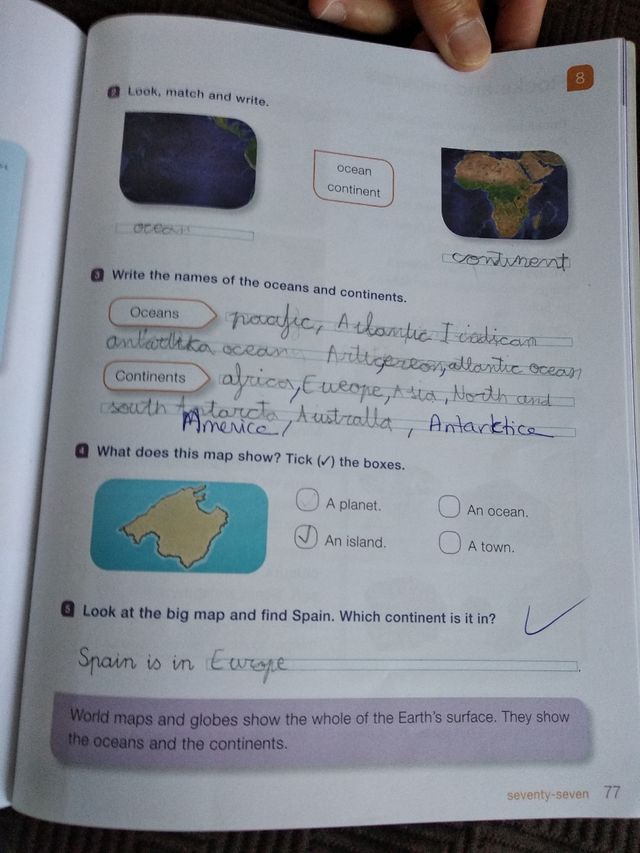 8
2 Look, match and write.
ocean
continent
ocean
continent
3 Write the names of the oceans and continents.
Oceans
pacific, Atlantic Indican
ocean, atlantic ocean
Continents
africa, Europe, Asia, North and
south Antarcta, Australla, Antarktica
America,
4 What does this map show? Tick (✓) the boxes.
A planet.
An ocean.
An island.
A town.
5 Look at the big map and find Spain. Which continent is it in?
Spain is in Europe
World maps and globes show the whole of the Earth's surface. They show
the oceans and the continents.
seventy-seven 77